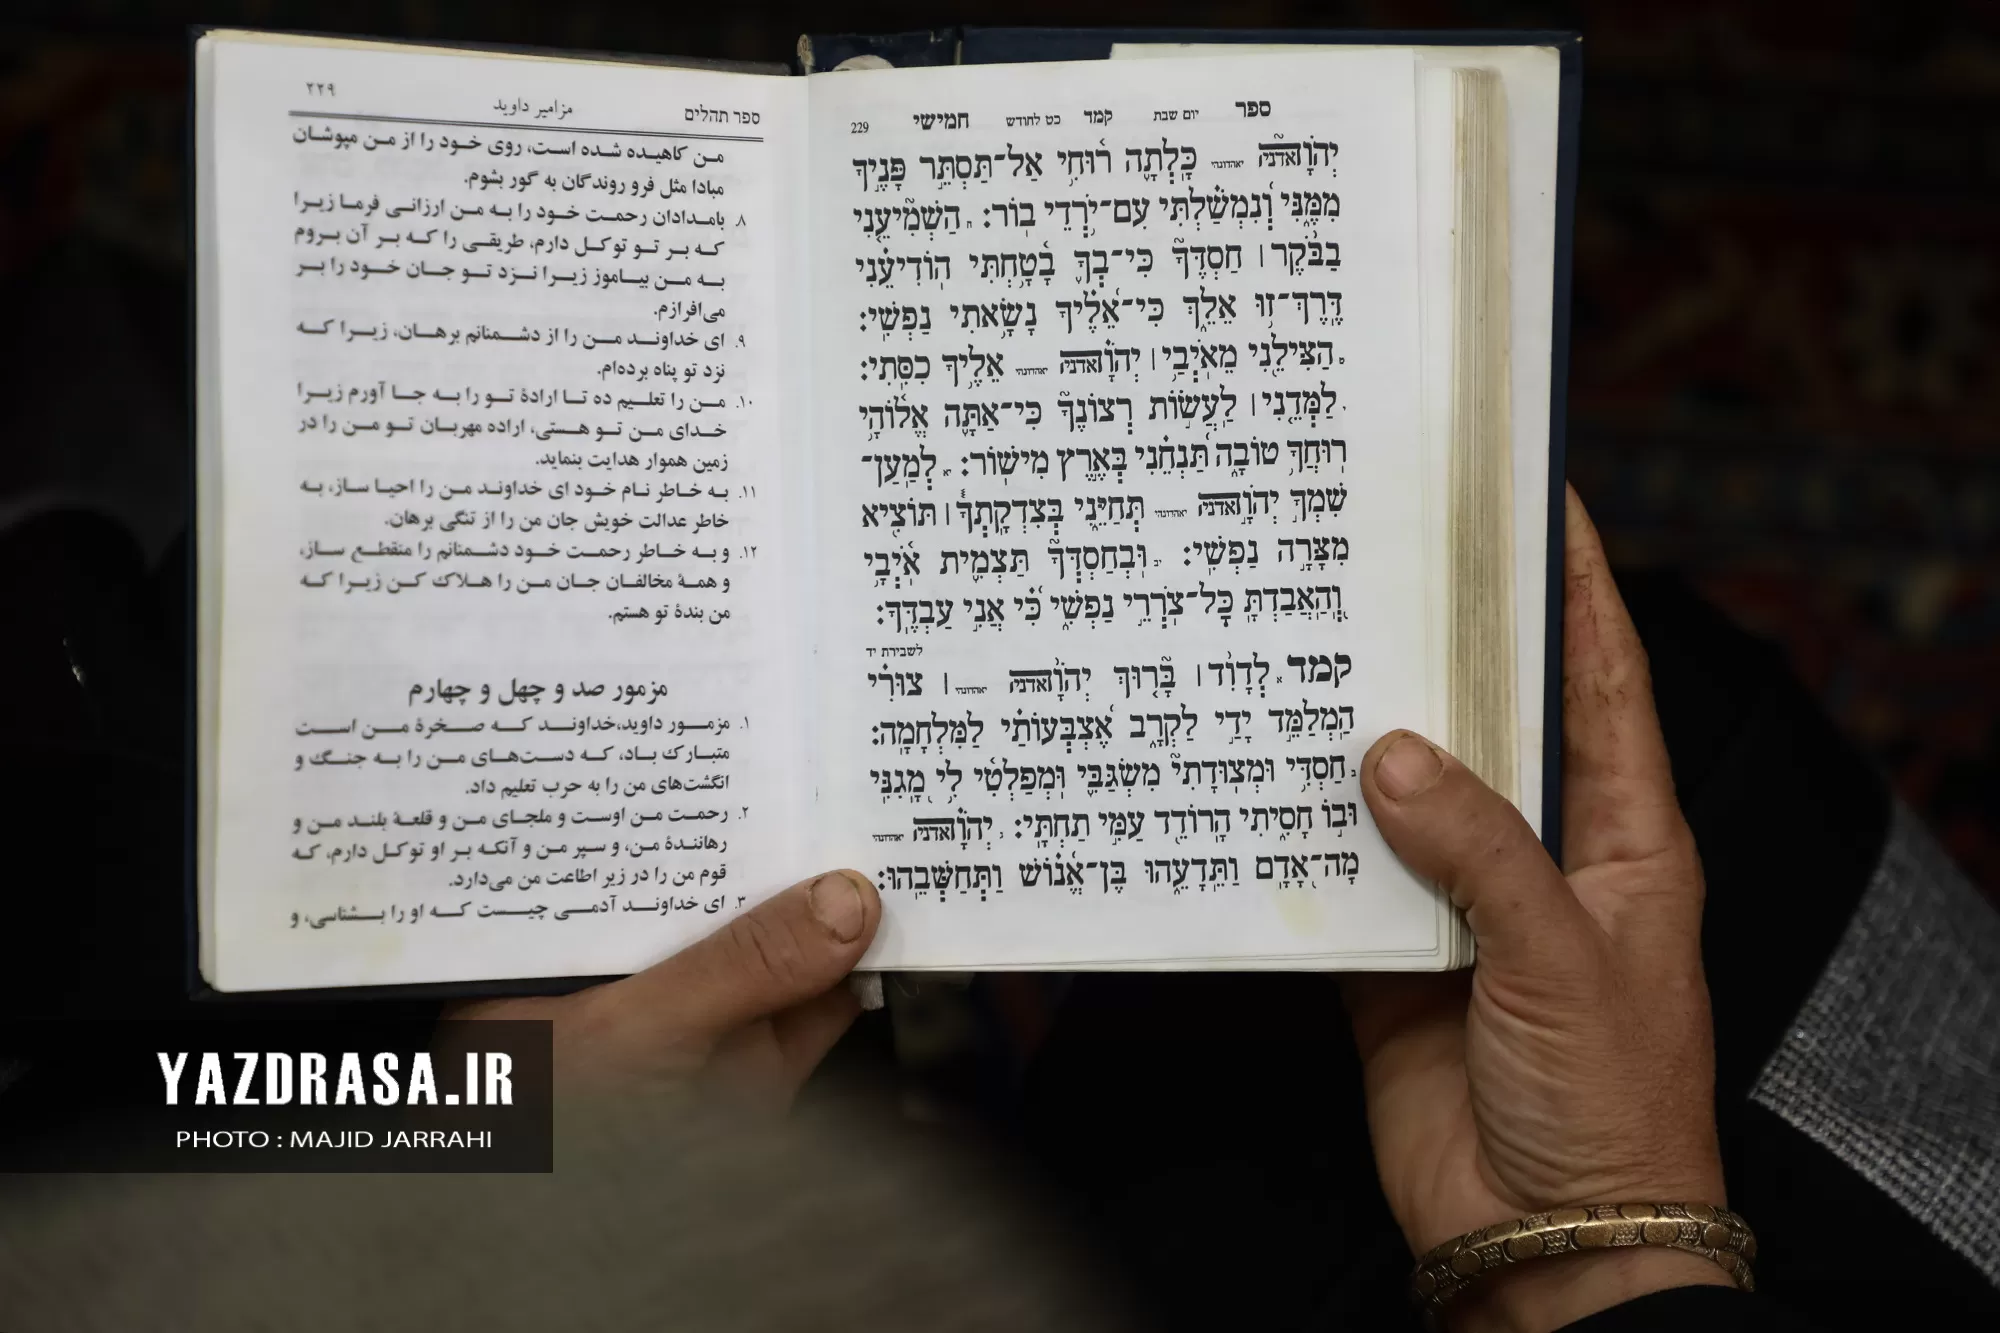 ספר יום שבת קמד כט לחודש חמישי 229
יְהֹוָה אדני יאהדונהי כָּלְתָה רוּחִי אַל־תַּסְתֵּר פָּנֶיךָ
מִמֶּנִּי וְנִמְשַׁלְתִּי עִם־יֹרְדֵי בוֹר: ח הַשְׁמִיעֵנִי
בַבֹּקֶר | חַסְדֶּךָ כִּי־בְךָ בָטָחְתִּי הוֹדִיעֵנִי
דֶּרֶךְ־זוּ אֵלֵךְ כִּי־אֵלֶיךָ נָשָׂאתִי נַפְשִׁי:
ט הַצִּילֵנִי מֵאֹיְבַי | יְהֹוָה אדני יאהדונהי אֵלֶיךָ כִסִּתִי:
י לַמְּדֵנִי | לַעֲשׂוֹת רְצוֹנֶךָ כִּי־אַתָּה אֱלוֹהָי
רוּחֲךָ טוֹבָה תַּנְחֵנִי בְּאֶרֶץ מִישׁוֹר: יא לְמַעַן־
שִׁמְךָ יְהֹוָה אדני יאהדונהי תְּחַיֵּנִי בְּצִדְקָתְךָ | תּוֹצִיא
מִצָּרָה נַפְשִׁי: יב וּבְחַסְדְּךָ תַּצְמִית אֹיְבָי
וְהַאֲבַדְתָּ כָּל־צֹרְרֵי נַפְשִׁי כִּי אֲנִי עַבְדֶּךָ:
לשבירת יד
קמד א לְדָוִד | בָּרוּךְ יְהֹוָה אדני יאהדונהי | צוּרִי
הַמְלַמֵּד יָדַי לַקְרָב אֶצְבְּעוֹתַי לַמִּלְחָמָה:
ב חַסְדִּי וּמְצוּדָתִי מִשְׂגַּבִּי וּמְפַלְטִי לִי מָגִנִּי
וּבוֹ חָסִיתִי הָרוֹדֵד עַמִּי תַחְתָּי: ג יְהֹוָה אדני יאהדונהי
מָה־אָדָם וַתֵּדָעֵהוּ בֶּן־אֱנוֹשׁ וַתְּחַשְּׁבֵהוּ:
ספר תהלים مزامیر داوید ۲۲۹
من کاهیده شده است، روی خود را از من مپوشان
مبادا مثل فرو روندگان به گور بشوم.
۸. بامدادان رحمت خود را به من ارزانی فرما زیرا
که بر تو توکل دارم، طریقی را که بر آن بروم
به من بیاموز زیرا نزد تو جان خود را بر
می‌افرازم.
۹. ای خداوند من را از دشمنانم برهان، زیرا که
نزد تو پناه برده‌ام.
۱۰. من را تعلیم ده تا ارادهٔ تو را به جا آورم زیرا
خدای من تو هستی، اراده مهربان تو من را در
زمین هموار هدایت بنماید.
۱۱. به خاطر نام خود ای خداوند من را احیا ساز، به
خاطر عدالت خویش جان من را از تنگی برهان.
۱۲. و به خاطر رحمت خود دشمنانم را منقطع ساز،
و همهٔ مخالفان جان من را هلاک کن زیرا که
من بندهٔ تو هستم.
مزمور صد و چهل و چهارم
۱. مزمور داوید،خداوند که صخرهٔ من است
متبارک باد، که دست‌های من را به جنگ و
انگشت‌های من را به حرب تعلیم داد.
۲. رحمت من اوست و ملجای من و قلعهٔ بلند من و
رهانندهٔ من، و سپر من و آنکه بر او توکل دارم، که
قوم من را در زیر اطاعت من می‌دارد.
۳. ای خداوند آدمی چیست که او را بشناسی، و
YAZDRASA.IR
PHOTO : MAJID JARRAHI